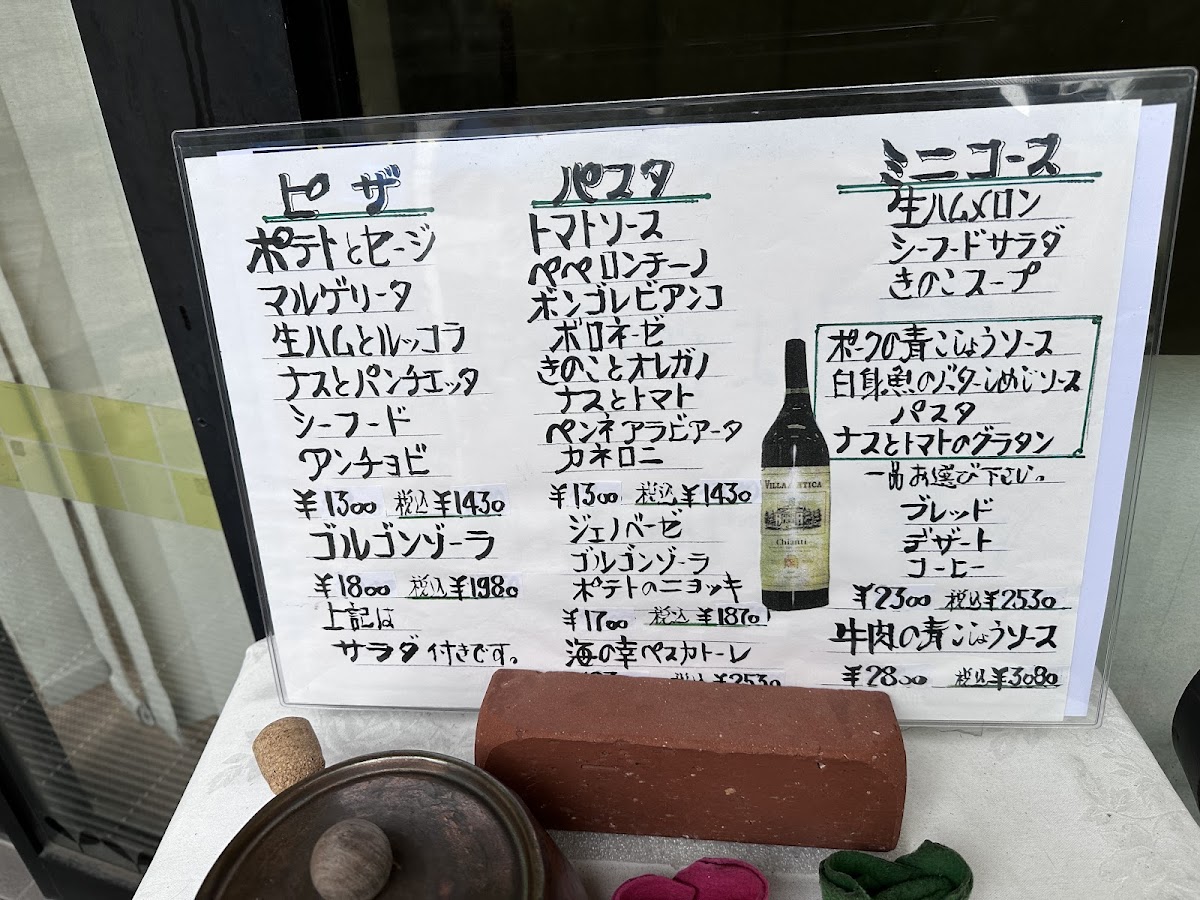 ピザ
ポテトとセージ
マルゲリータ
生ハムとルッコラ
ナスとパンチェッタ
シーフード
アンチョビ
¥1300 税込¥1430
ゴルゴンゾーラ
¥1800 税込¥1980
上記は
サラダ付きです。
パスタ
トマトソース
ペペロンチーノ
ボンゴレビアンコ
ボロネーゼ
きのことオレガノ
ナスとトマト
ペンネアラビアータ
カネロニ
¥1300 税込¥1430
ジェノベーゼ
ゴルゴンゾーラ
ポテトのニョッキ
¥1700 税込¥1870
海の幸ペスカトーレ
税込¥2530
ミニコース
生ハムメロン
シーフードサラダ
きのこスープ
ポークの青こしょうソース
白身魚のバターしめじソース
パスタ
ナスとトマトのグラタン
一品お選び下さい。
ブレッド
デザート
コーヒー
¥2300 税込¥2530
牛肉の青こしょうソース
¥2800 税込¥3080
VILLA ANTICA
Chianti